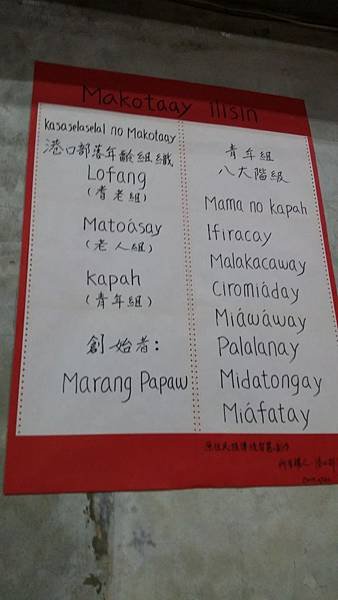 Makotaay Ilisin
kasaselaselal no Makotaay
港口部落年齡組織
Lofang
(耆老組)
Matoásay
(老人組)
kapah
(青年組)
創始者:
Marang Papaw
青年組
八大階級
Mama no kapah
Ifiracay
Malakacaway
Ciromiáday
Miáwáway
Palalanay
Midatongay
Miáfatay
原住民族傳統智慧創作